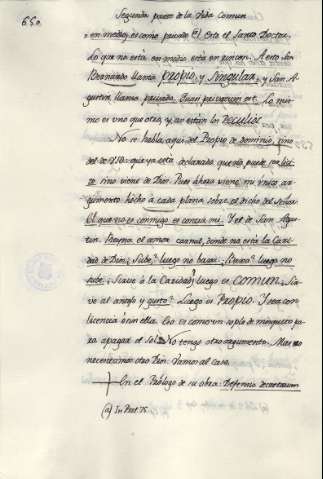 650.
Segunda parte de la Vida Comun
en medio, es como privado. El Esta el Santo Doctor.
Lo que no está en medio está en rincon. A esto San
Bernardo llama PROPIO, y SINGULAR, y San A-
gustin llama privado, Quasi privatum est. Lo mis-
mo es uno que otro, y así están los Peculios
No se habla aqui del Propio de dominio, sino
del de uso: que ya está declarado que no puede ser lici-
to sino viene de Dios. Pues ahora viene mi unico ar-
gumento hecho à cada plana sobre el dicho del Señor
El que no es conmigo es contra mi. Y el de San Agus-
tin. Reyna el amor carnal, donde no está la Cari-
dad de Dios. Sube? luego no baxa. Baxa? luego no
sube. Sirve à la Caridad? luego es COMUN. Sir-
ve al antojo y gusto? Luego es PROPIO. Y sea con
licencia ò sin ella. Eso es como un soplo de mosquito pa-
ra apagar el Sol. No tengo otro argumento. Mas no
necesito otro Dios. Vamos al caso.
En el Prólogo de su obra: Defensio decretorum
(a) In Psal. 75.